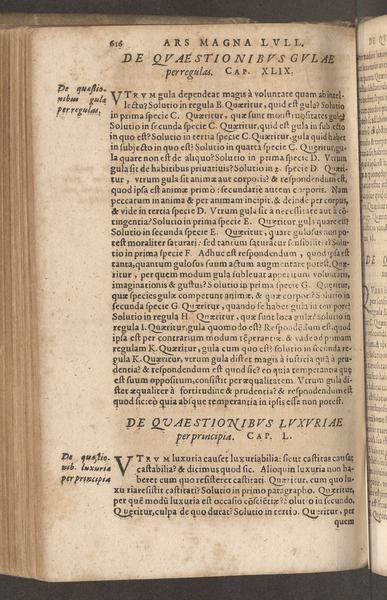 626
ARS MAGNA LVLL.
DE QVAESTIONIBVS GVLAE
per regulas. CAP. XLIX.
De quæstio-
nibus gula
per regulas.
VTRVM gula dependeat magis à voluntate quam ab intel-
lectu? Solutio in regula B. Quæritur, quid est gula? Solutio
in prima specie C. Quæritur, quæ sunt monstruositates gulæ?
Solutio in secunda specie C. Quæritur, quid est gula in subiecto
in quo est? Solutio in tertia specie C. Quæritur, gula quid habet
in subiecto in quo est? Solutio in quarta specie C. Quæritur, gu-
la quare non est de aliquo? Solutio in prima specie D. Vtrum
gula sit de habitibus priuatiuis? Solutio in 2. specie D. Quæri-
tur, vtrum gula sit animæ aut corporis? & respondendum est,
quod ipsa est animæ primò: secundariè autem corporis. Nam
peccatum in anima & per animam incipit, & deinde per corpus,
& vide in tertia specie D. Vtrum gula sit à necessitate aut à cō-
tingentia? Solutio in prima specie E. Quæritur gula quare est?
Solutio in secunda specie E. Quæritur, quare gulosus non po-
test moraliter saturari: sed tantum saturatur sensibiliter? Solu-
tio in prima specie F. Adhuc est respondendum, quod ipsa est
tanta, quantum gulosus suum actum augmentare potest. Quæ-
ritur, per quem modum gula subleuat appetitum voluntatis,
imaginationis & gustus? Solutio in prima specie G. Quæritur,
quæ species gulæ competunt animæ, & quæ corpori? Solutio in
secunda specie G. Quæritur, quando se habet gula in corpore?
Solutio in regula H. Quæritur, quæ sunt loca gulæ? solutio in
regula I. Quæritur, gula quomodo est? Respondendum est, quod
ipsa est per contrarium modum tēperantiæ. & vade ad primam
regulam K. Quæritur, gula cum quo est? Solutio in secunda re-
gula K. Quæritur, vtrum gula distet magis à iustitia quā à pru-
dentia? & respondendum est quod sic? eo quia temperantia quę
est suum oppositum, consistit per æqualitatem. Vtrum gula di-
stet æqualiter à fortitudine & prudentia? & respondendum est
quod sic: eò quia absque temperantia in ipsis esse non potest.
DE QVAESTIONIBVS LVXVRIAE
per principia. CAP. L.
De quæstio-
nib. luxuria
per principia
VTRVM luxuria causet luxuriabilia: sicut castitas causat
castabilia? & dicimus quod sic. Alioquin luxuria non ha-
beret cum quo resisteret castitati. Quæritur, cum quo lu-
xuria resistit castitati? Solutio in primo paragrapho. Quæritur,
per quē modū luxuria est occasio cōscietiæ? Solutio in secundo.
Quæritur, culpa de quo durat? Solutio in tertio. Quæritur, per
quem